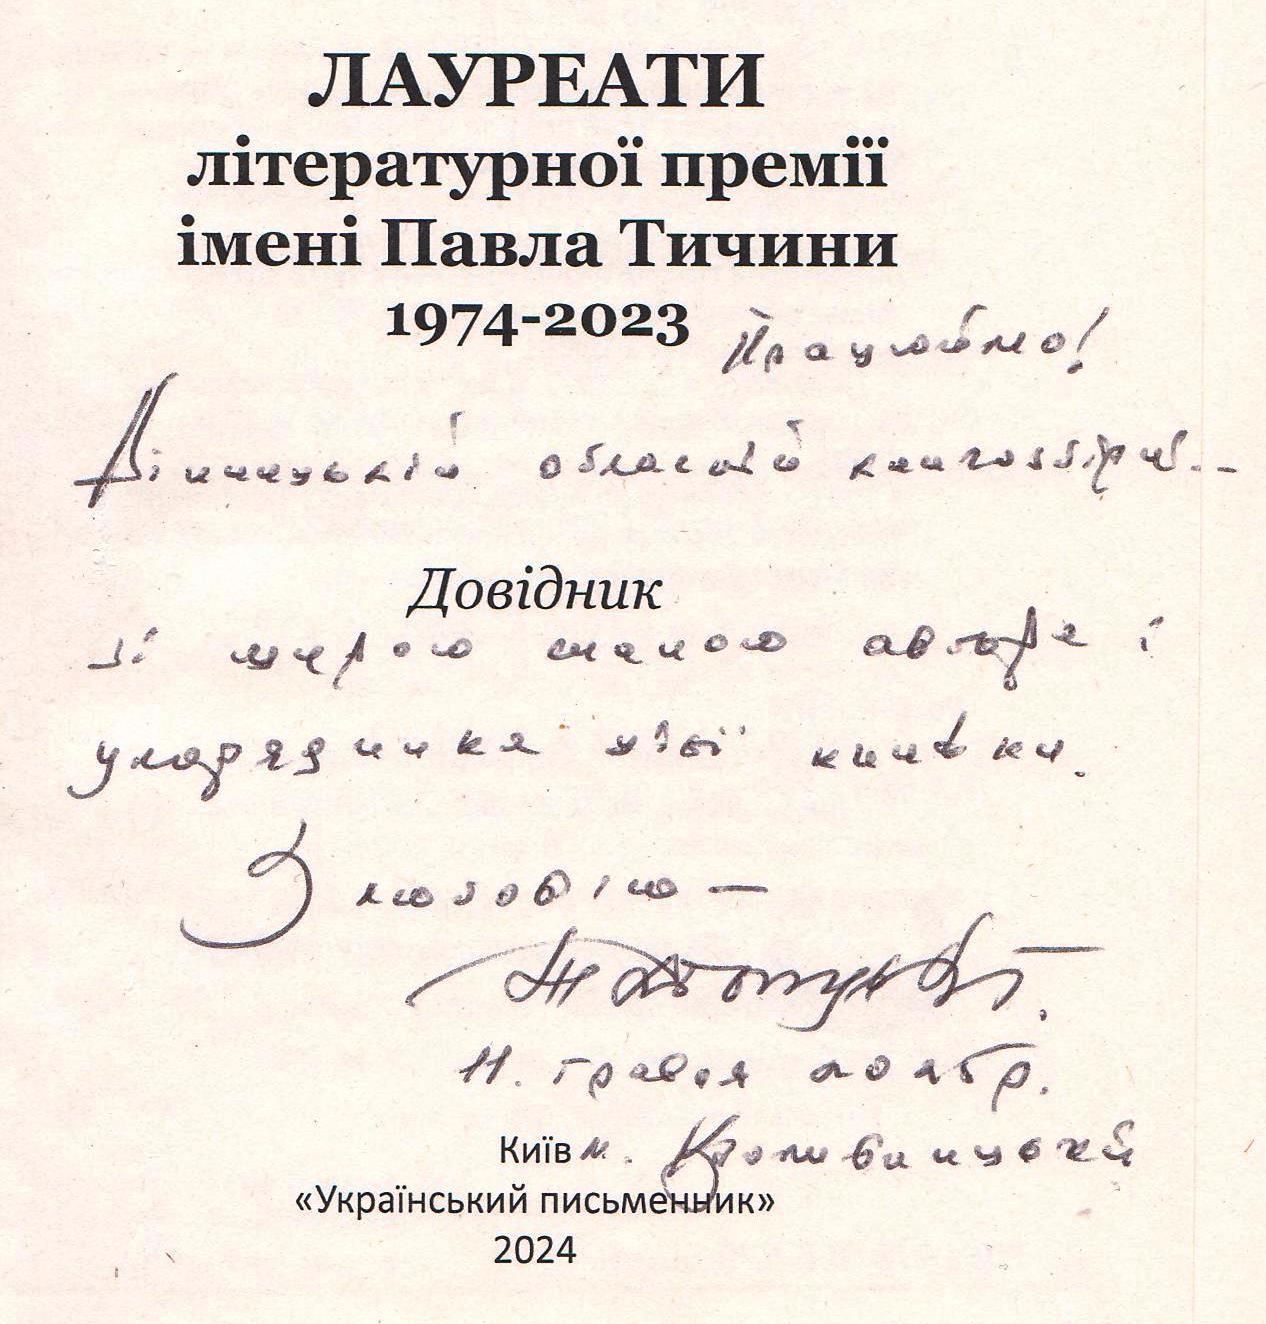 ЛАУРЕАТИ
літературної премії
імені Павла Тичини
1974-2023
Працюймо!
Вінницькій обласній книгозбірні
Довідник
Зі щирою шаною автора і
упорядника цієї книжки.
З любов'ю —
11. травня 2024р.
Київ
м. Кропивницький
«Український письменник»
2024